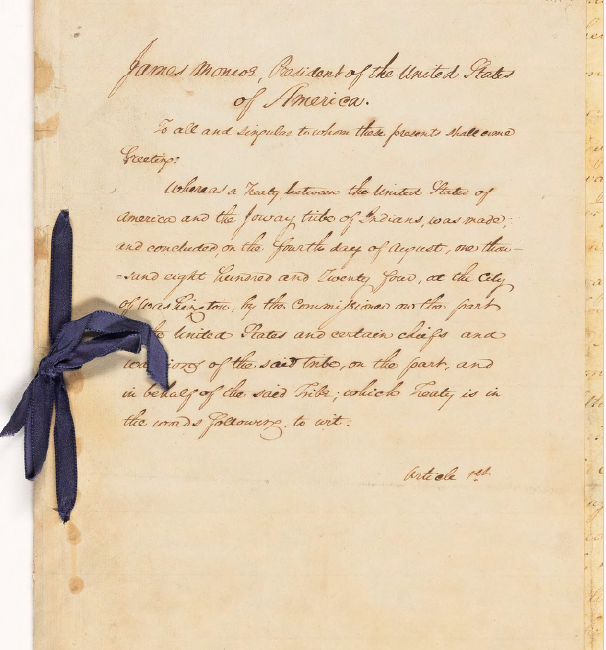 James Monroe, President of the United States
of America.
To all and singular to whom these presents shall come
Greeting:
Whereas a Treaty between the United States of
America and the Ioway tribe of Indians, was made,
and concluded, on the fourth day of August, one thou-
-sand eight hundred and Twenty four, at the City
of Washington, by the Commissioner on the part
United States and certain chiefs and
of the said tribe, on the part, and
in behalf of the said Tribe; which Treaty is in
the words following, to wit:
Article 1st